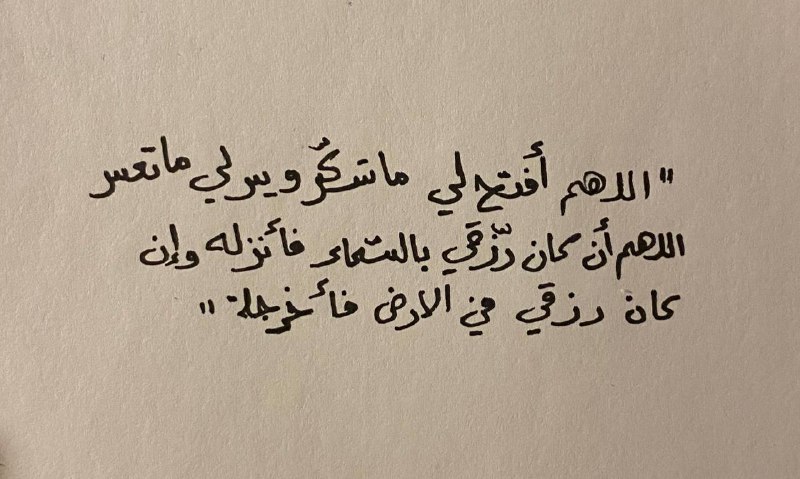 "اللهم أفتح لي ماتسكُر ويسرلي ماتعسر
اللهم أن كان رزقي بالسماء فأنزله وإن
كان رزقي في الارض فأخرجلة"